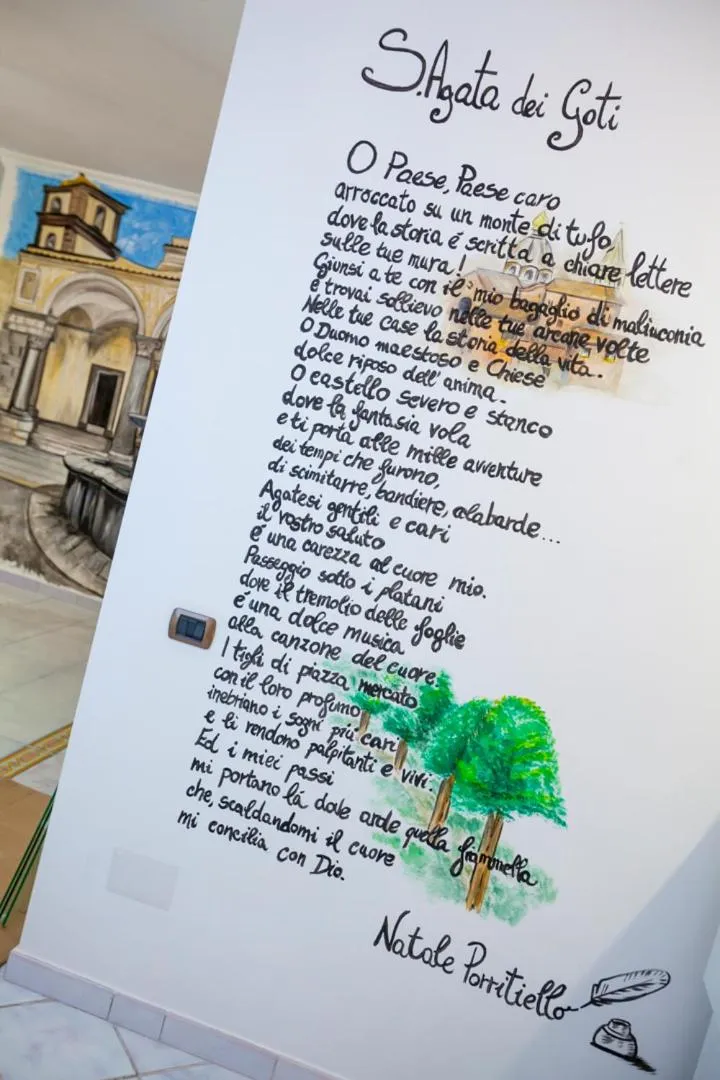 S.Agata dei Goti
O Paese, Paese caro
arroccato su un monte di tufo,
dove la storia é scritta a chiare lettere
sulle tue mura!
Giunsi a te con il mio bagaglio di malinconia
e trovai sollievo nelle tue arcane volte
Nelle tue case la storia della vita.
O Duomo maestoso e Chiese
dolce riposo dell'anima.
O castello severo e stanco
dove la fantasia vola
e ti porta alle mille avventure
dei tempi che furono,
di scimitarre, bandiere, alabarde...
Agatesi gentili e cari
il vostro saluto
é una carezza al cuore mio.
Passeggio sotto i platani
dove il tremolio delle foglie
é una dolce musica
alla canzone del cuore.
I tigli di piazza mercato
con il loro profumo
inebriano i sogni più cari
e li rendono palpitanti e vivi.
Ed i miei passi
mi portano lá dove arde quella fiammella
che, scaldandomi il cuore
mi concilia con Dio.
Natale Porritiello